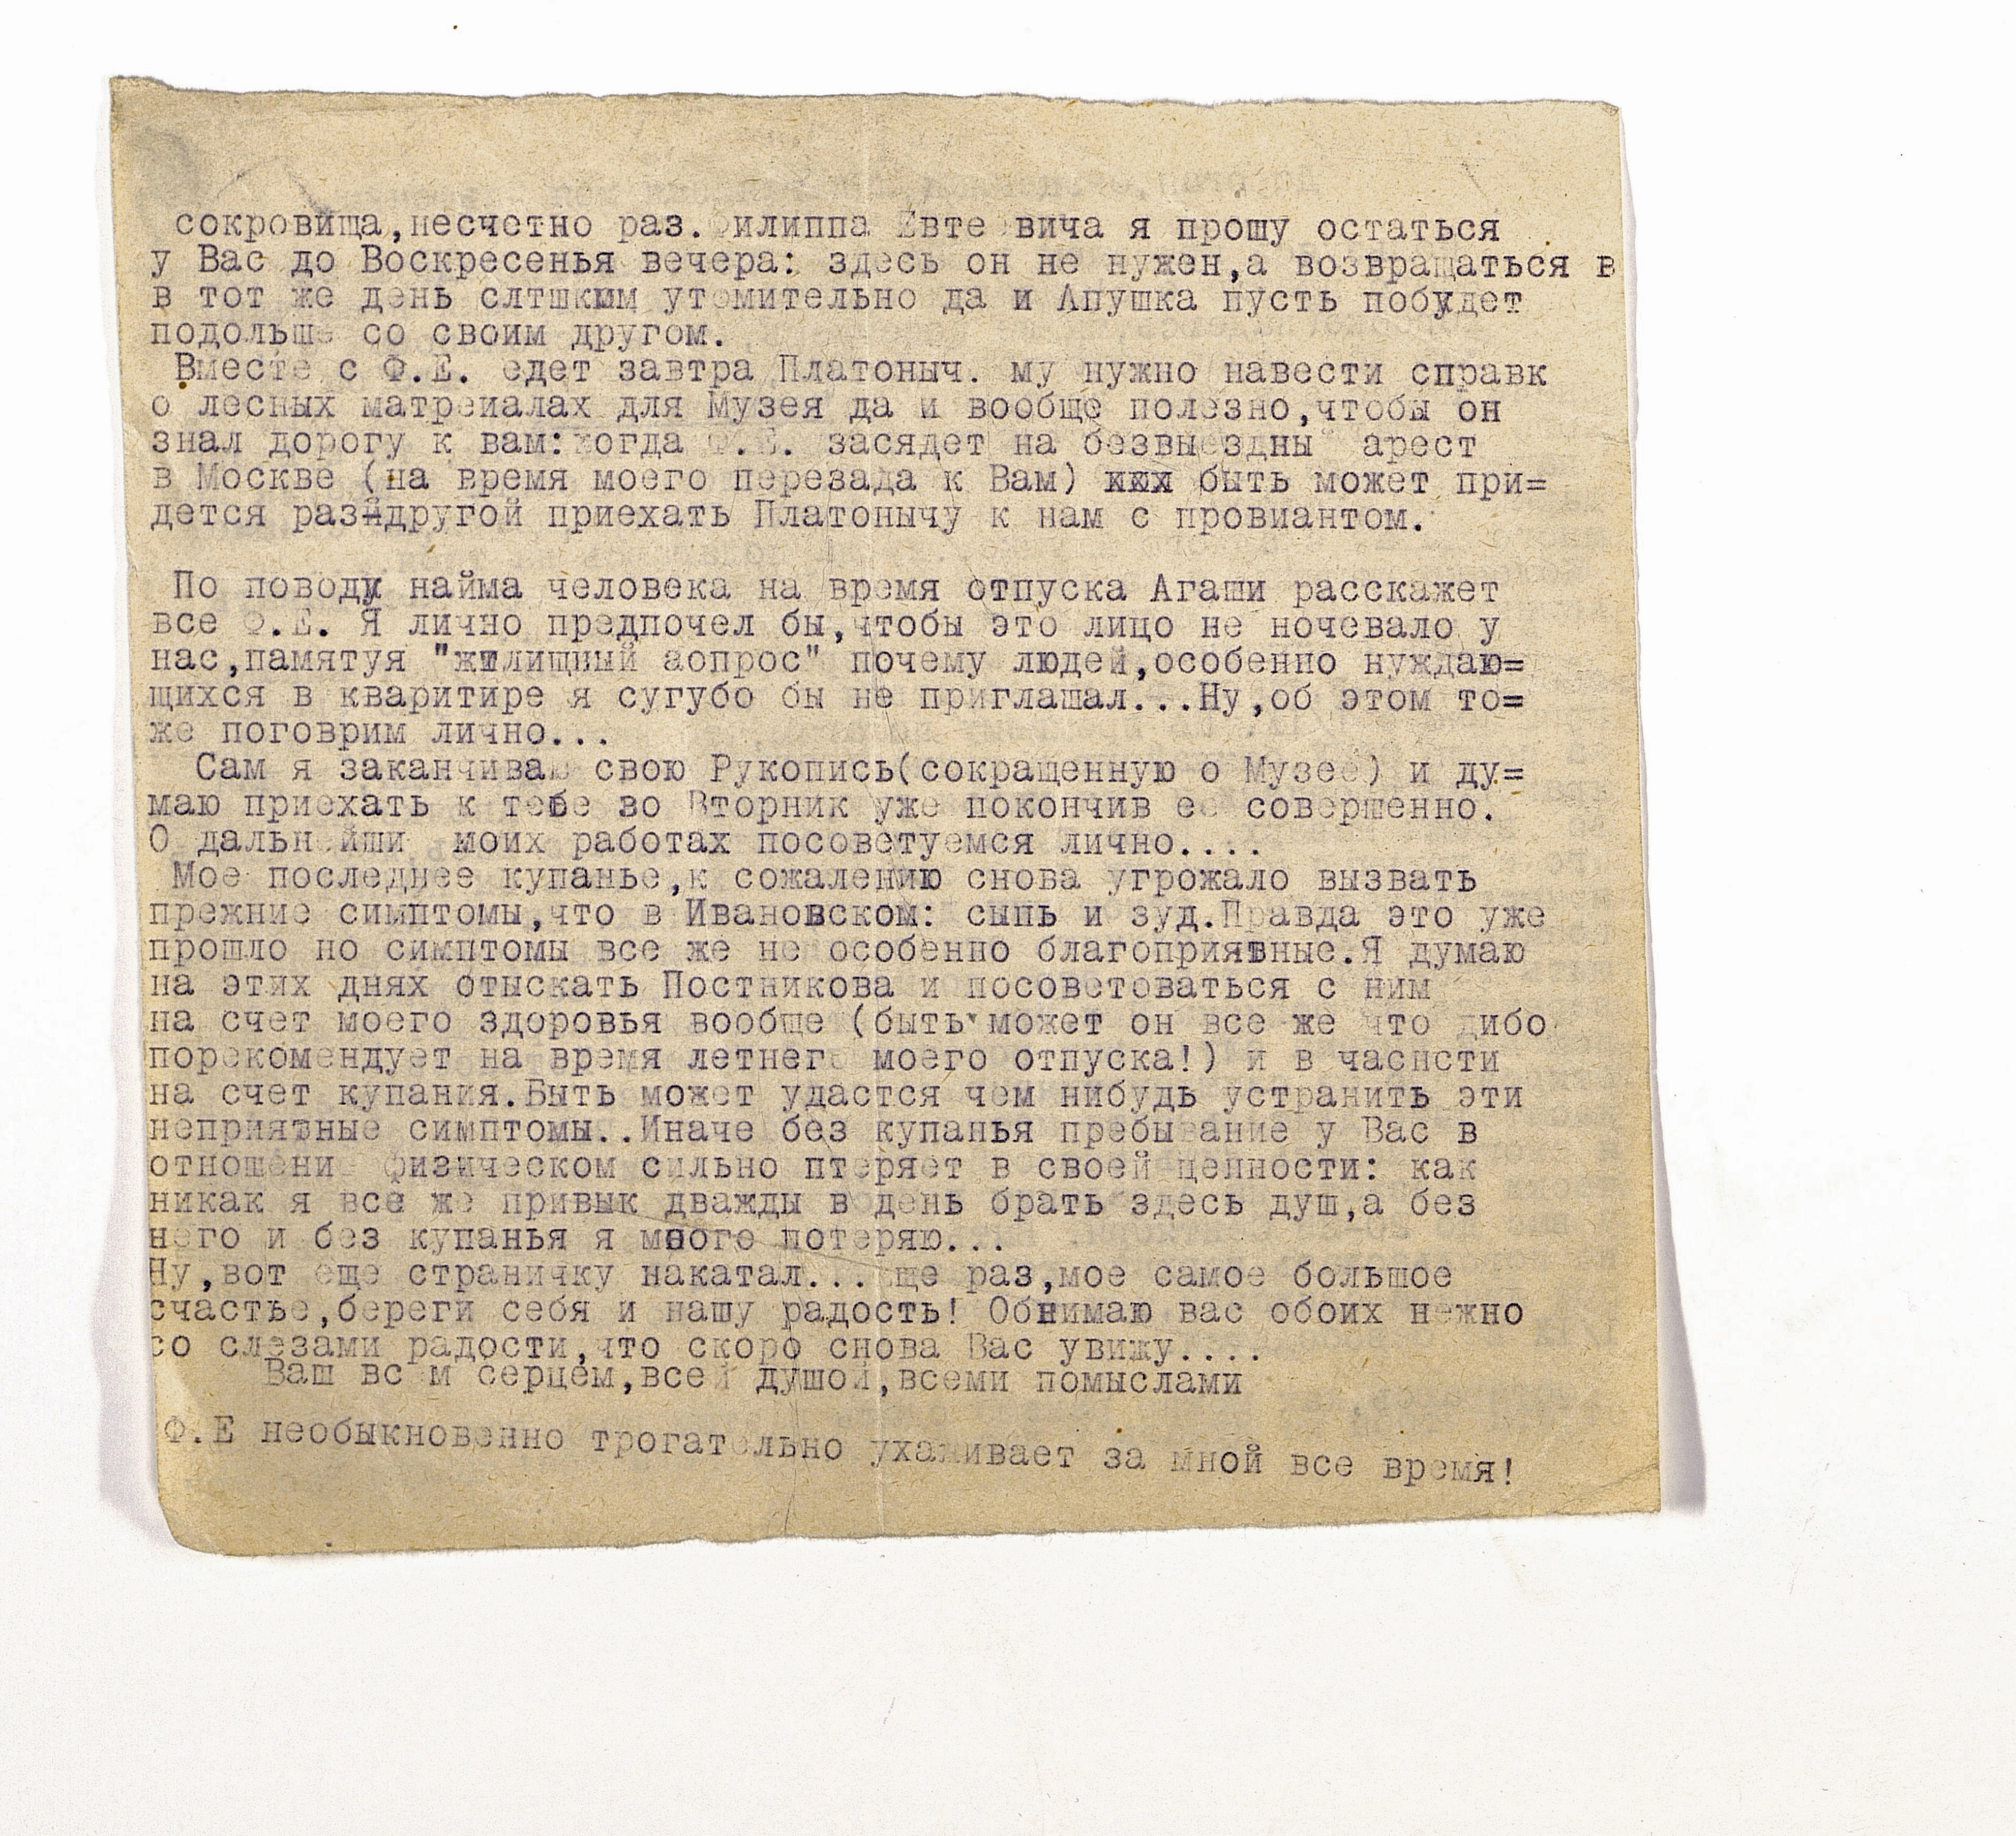 сокровища,несчетно раз. Филиппа Евтеевича я прошу остаться
у Вас до Воскресенья вечера: здесь он не нужен,а возвращаться в
в тот же день слтшким утомительно да и Апушка пусть побудет
подольше со своим другом.
Вместе с Ф.Е. едет завтра Платоныч. му нужно навести справк
о лесных матреиалах для Музея да и вообще полезно,чтобы он
знал дорогу к вам:когда Ф.Е. засядет на безвыездны арест
в Москве (на время моего перезада к Вам) быть может при=
дется раз-другой приехать Платонычу к нам с провиантом.
По поводу найма человека на время отпуска Агаши расскажет
все Ф.Е. Я лично предпочел бы,чтобы это лицо не ночевало у
нас,памятуя "жилищный аопрос" почему людей,особенно нуждаю=
щихся в кваритире я сугубо бы не приглашал...Ну,об этом то=
же поговрим лично...
Сам я заканчиваю свою Рукопись(сокращенную о Музее) и ду=
маю приехать к тебе во Вторник уже покончив ее совершенно.
О дальнейши моих работах посоветуемся лично....
Мое последнее купанье,к сожалению снова угрожало вызвать
прежние симптомы,что в Ивановском: сыпь и зуд.Правда это уже
прошло но симптомы все же не особенно благоприятные.Я думаю
на этих днях отыскать Постникова и посоветоваться с ним
на счет моего здоровья вообще (быть может он все же что либо
порекомендует на время летнего моего отпуска!) и в часисти
на счет купания.Быть может удастся чем нибудь устранить эти
неприятные симптомы..Иначе без купанья пребывание у Вас в
отношении физическом сильно птеряет в своей ценности: как
никак я все же привык дважды в день брать здесь душ,а без
него и без купанья я много потеряю...
Ну,вот еще страничку накатал... Еще раз,мое самое большое
счастье,береги себя и нашу радость! Обнимаю вас обоих нежно
со слезами радости,что скоро снова Вас увижу....
Ваш всем серцем,всей душой,всеми помыслами
Ф.Е необыкновенно трогательно ухаживает за мной все время!